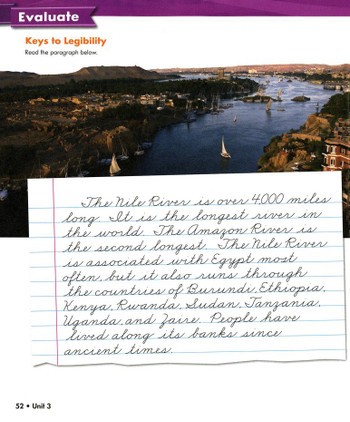 Evaluate
Keys to Legibility
Read the paragraph below.
The Nile River is over 4,000 miles
long. It is the longest river in
the world. The Amazon River is
the second longest. The Nile River
is associated with Egypt most
often, but it also runs through
the countries of Burundi, Ethiopia,
Kenya, Rwanda, Sudan, Tanzania,
Uganda, and Zaire. People have
lived along its banks since
ancient times.
52 • Unit 3